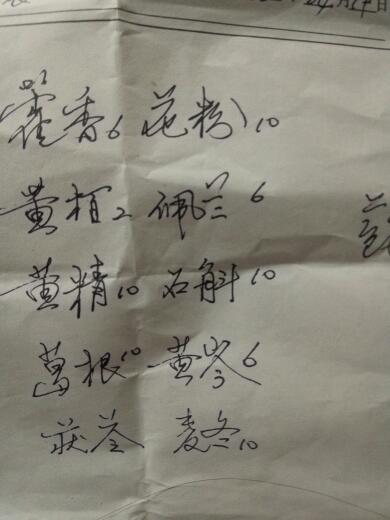 藿香6 花粉10
黄柏2 佩兰6
黄精10 石斛10
葛根10 黄芩6
茯苓 麦冬10